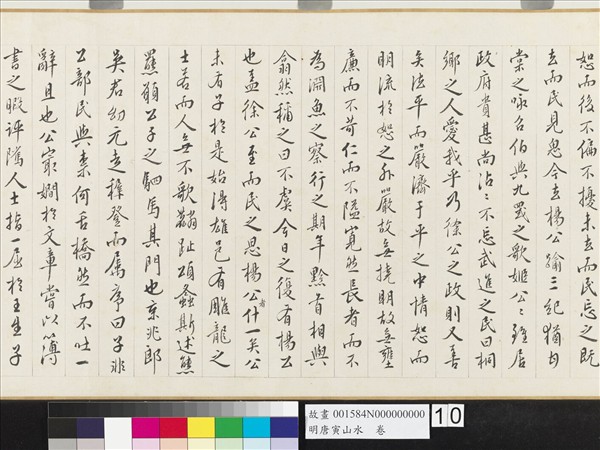 恕而後不偏不擾未去而民忌之既
去而民見思今去楊公踰三紀猶甘
棠之咏召伯與九罭之歌姬公公雖居
政府貴甚尚沾沾不忘武進之民曰桐
鄉之人愛我乎乃徐公之政則又善
矣法平而嚴濟于平之中情恕而
明流於恕之外嚴故無撓明故無壅
廉而不苛仁而不隘寬然長者而不
為淵魚之察行之期年黔首相與
翕然稱之曰不虞今日之復有楊公
也蓋徐公至而民之思楊公者什一矣公
未有子於是始得雄邑有雕龍之
士若而人無不歌麟趾頌螽斯述熊
羆願公子之駟馬其門也京兆郎
吳君幼元走稺登而属序曰子非
公部民與素何舌橋然而不吐一
辭且也公最嫺於文章嘗以簿
書之暇評隲人士指一屈於王生子
故畫 001584N000000000
明唐寅山水 卷
10